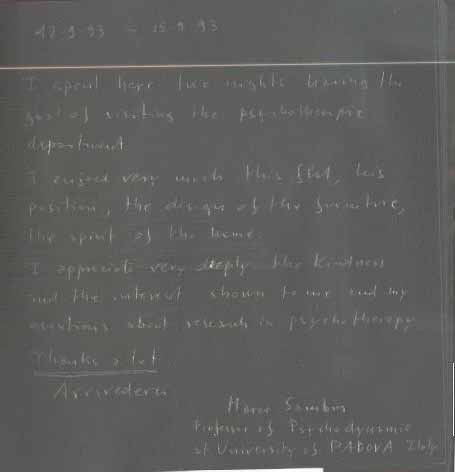 12.9.93 – 15.9.93
I spent here two nights having the
goal of visiting the psychotherapie
department
I enjoed very much this flat, his
position, the design of the furniture,
the spirit of the home.
I appreciate very deeply the kindness
and the interest shown to me and my
questions about research in psychotherapy
Thanks a lot
Arrivederci
Marco Sambin
Professor of Psychodynamic
at University of PADOVA Italy